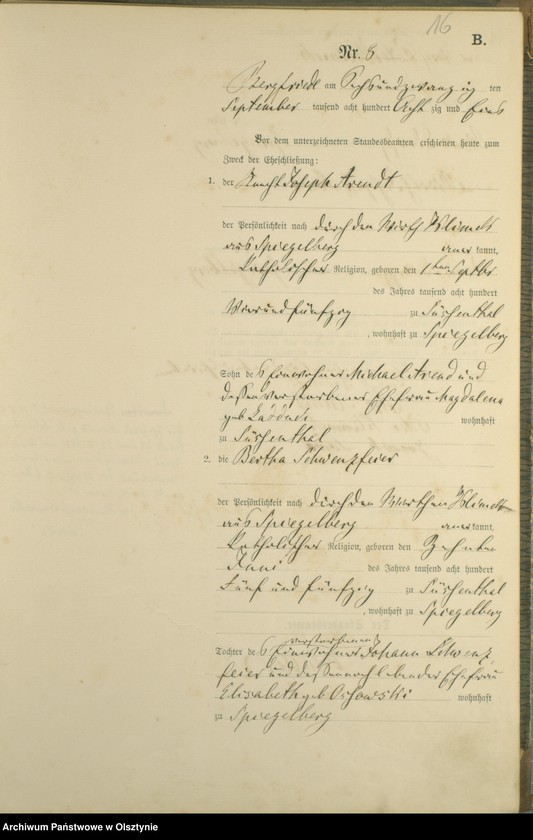 16
B.
Nr. 8
Bergfriede am Sechsundzwanzig ten
September tausend acht hundert Acht zig und Eins
Vor dem unterzeichneten Standesbeamten erschienen heute zum
Zweck der Eheschließung:
1. der Knecht Joseph Arendt
der Persönlichkeit nach durch den Wirth
aus Spiegelberg aner kannt,
katholischer Religion, geboren den 1ten Septbr
des Jahres tausend acht hundert
Vier und fünfzig zu Süssenthal
, wohnhaft zu Spiegelberg
Sohn des Einwohner Michael Arend und
dessen verstorbener Ehefrau Magdalena
geb. wohnhaft
zu Süssenthal
2. die Bertha Schwenzfeier
der Persönlichkeit nach durch den Wirthen
aus Spiegelberg aner kannt,
katholischer Religion, geboren den Zehnten
Juni des Jahres tausend acht hundert
Fünf und fünfzig zu Süssenthal
, wohnhaft zu Spiegelberg
verstorbenen
Tochter des Einwohner Johann Schwenz
feier und dessen noch lebender Ehefrau
Elisabeth geb Orzowski wohnhaft
zu Spiegelberg
Archiwum Państwowe w Olsztynie